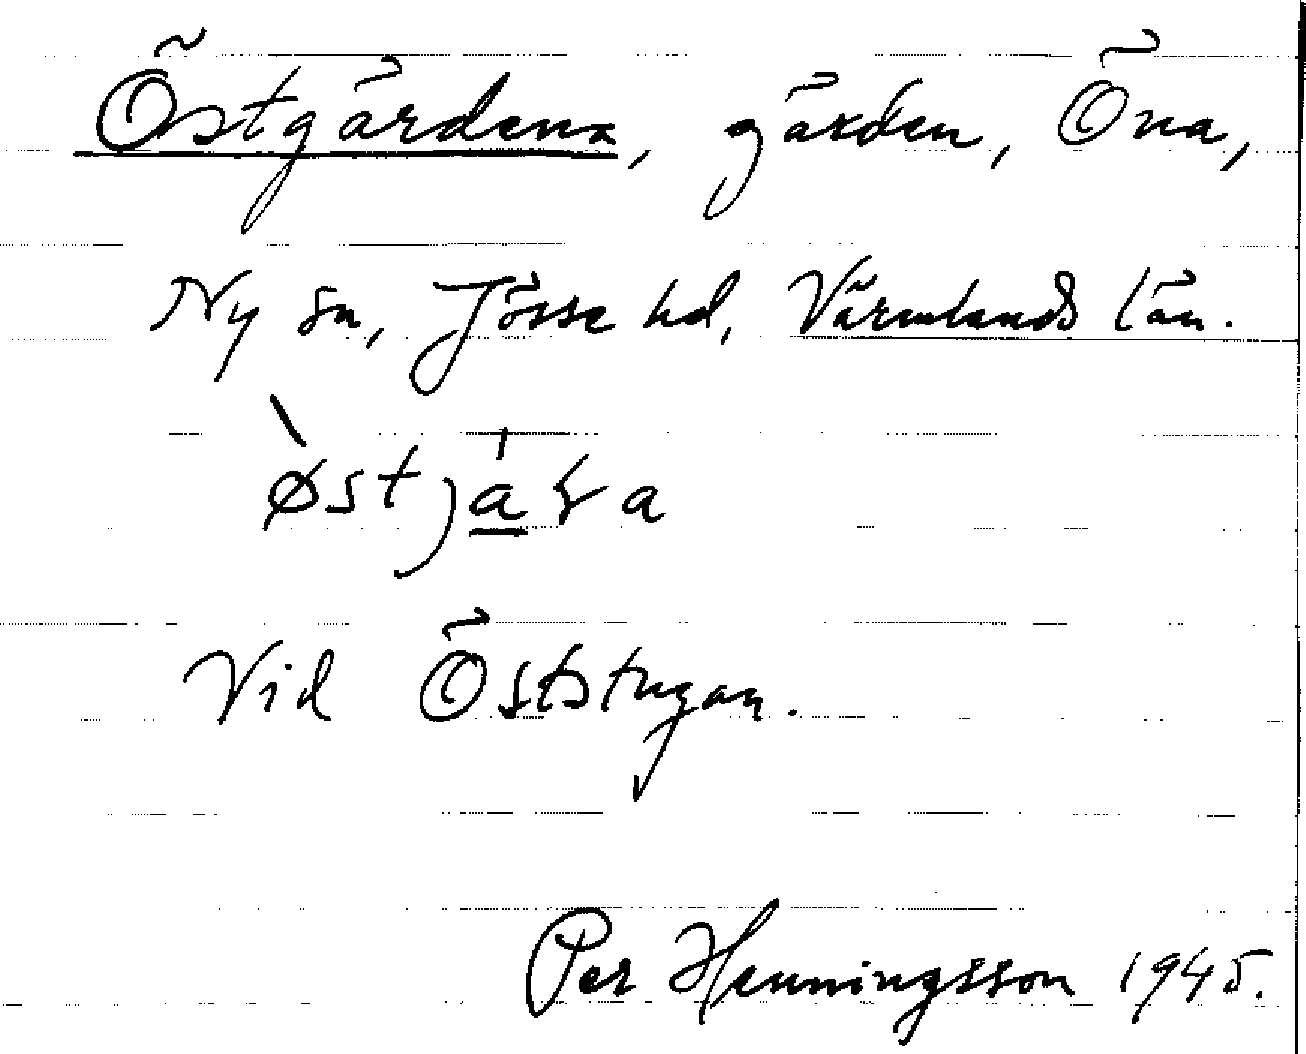 Östgärdena, gärden, Öna,
Ny sn, Jösse hd, Värmlands län.
ø̀stja̲̍ɽa
Vid Öststugan.
Per Henningsson 1945.